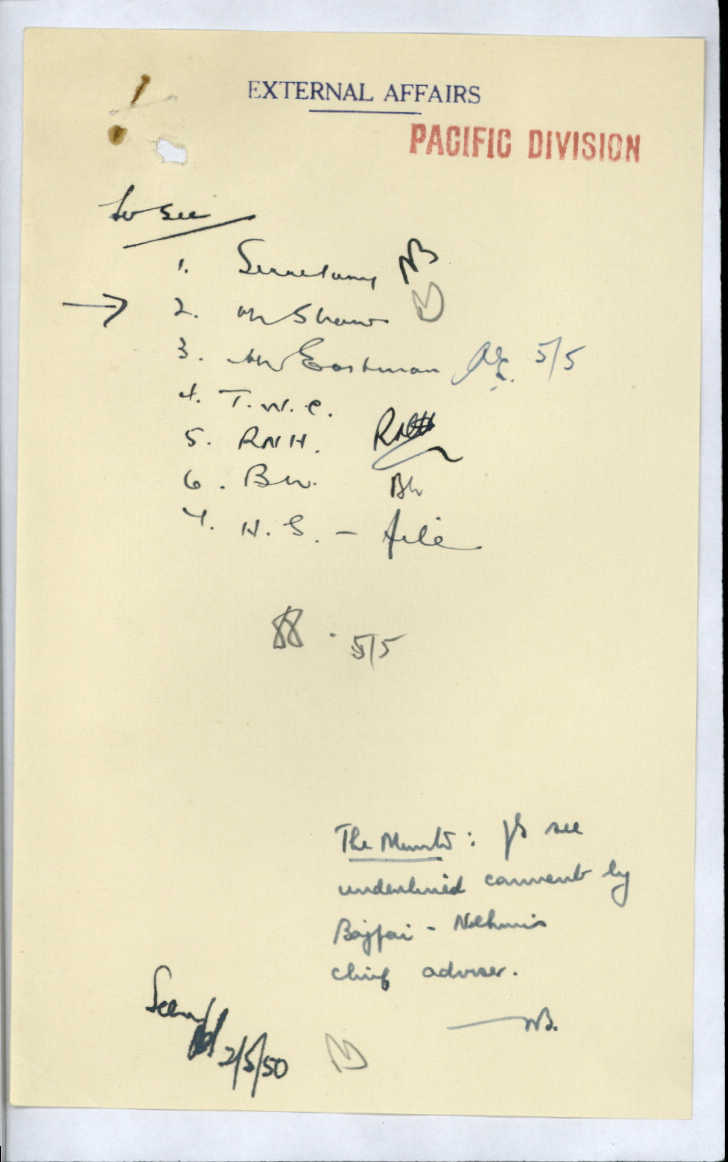 EXTERNAL AFFAIRS
PACIFIC DIVISION
to see
1. Secretary NB
2. Mr Shaw
3. Mr Eastman 5/5
4. T.W.C.
5. RNH. RNH
6. BW. BW
7. H.S. - file
5/5
The Minister: pls see
underlined comment by
Bajpai - Nehru's
chief adviser.
NB.
Seen
2/5/50